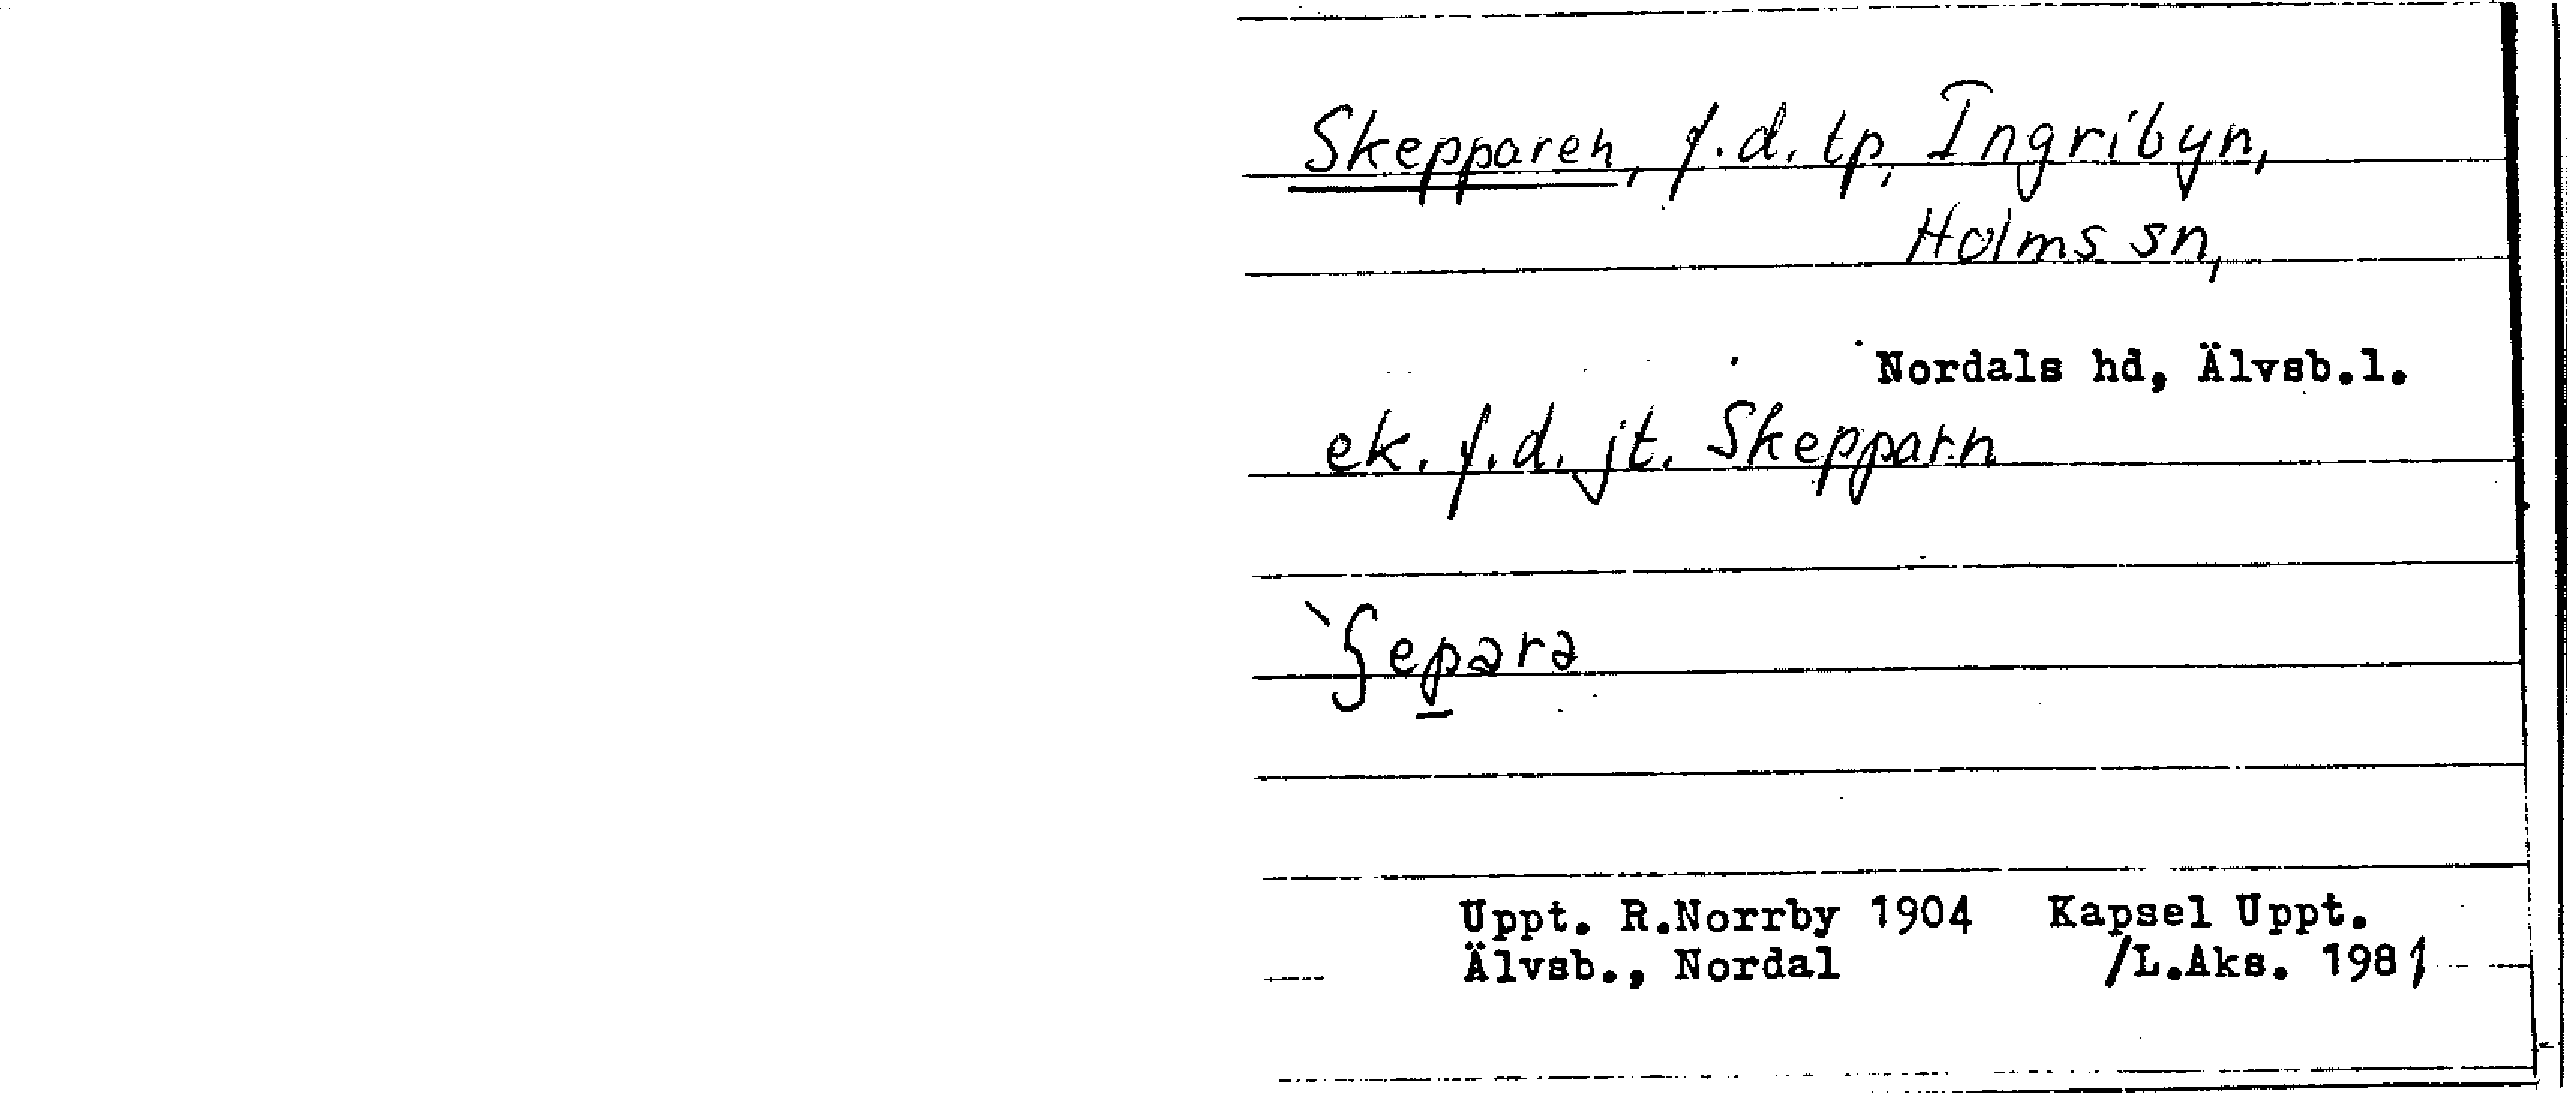 Skepparen, f.d. tp, Ingribyn,
Holms sn,
Nordals hd, Älvsb.l.
ek. f.d. jt. Skepparn
`ʃepərə
Uppt. R.Norrby 1904 Kapsel Uppt.
Älvsb., Nordal /L.Aks. 1981